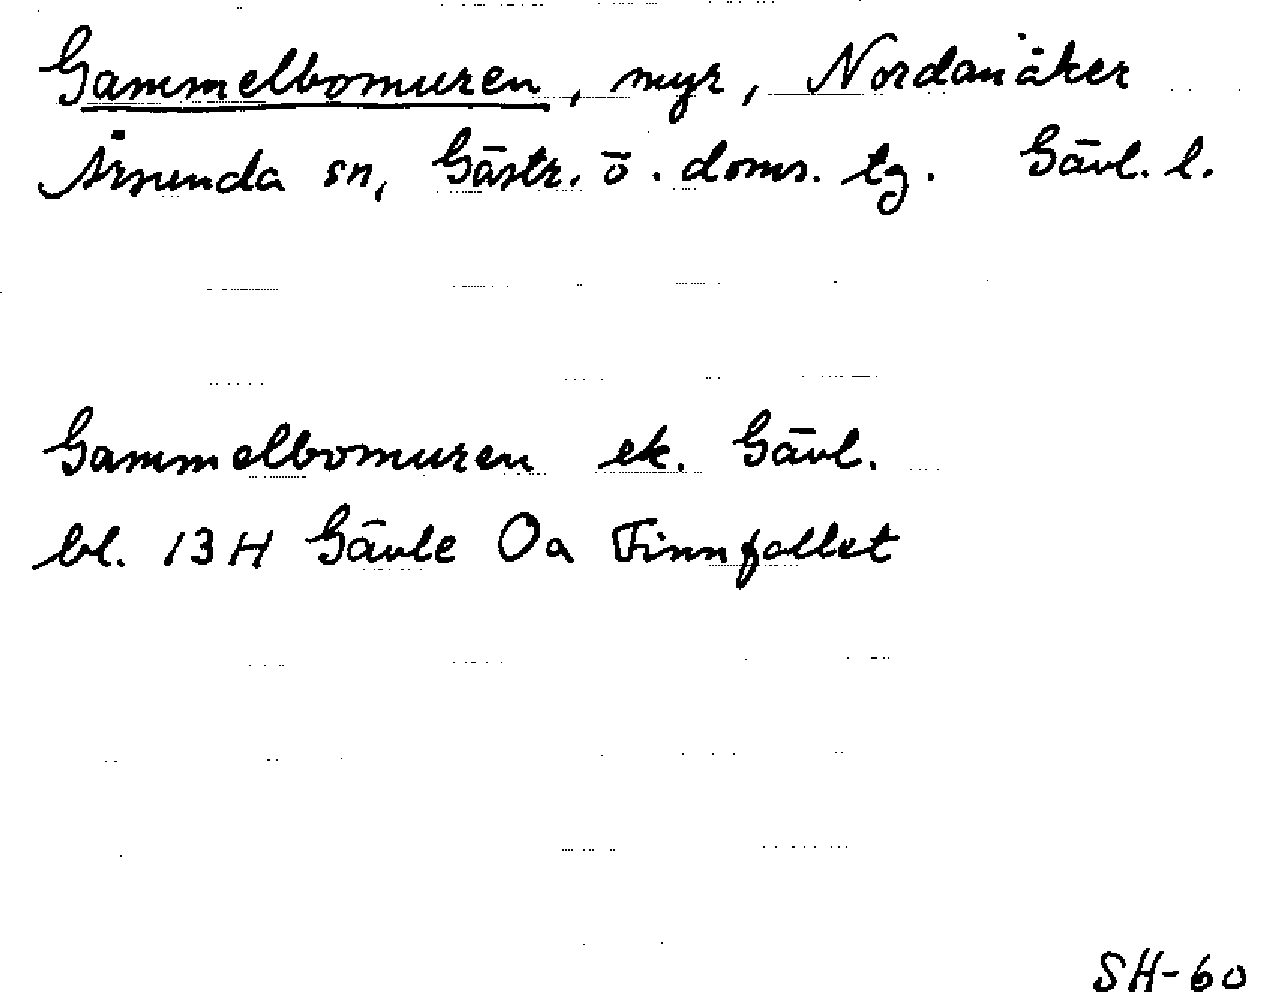 Gammelbomuren, myr, Nordanåker
Årsunda sn, Gästr. ö. doms. tg. Gävl. l.
Gammelbomuren ek. Gävl.
bl. 13H Gävle Oa Finnfallet
SH-60